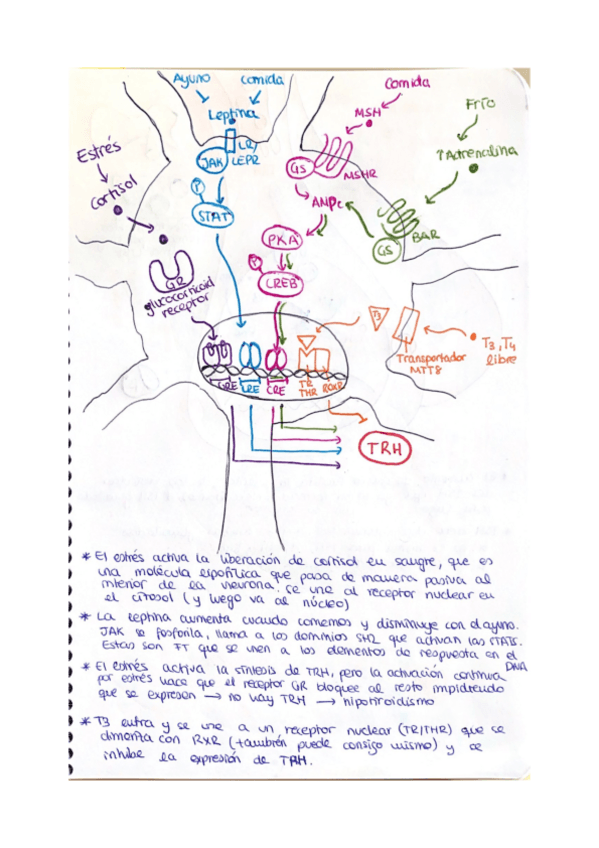 Ayuno
comida
Leptina
LR
LEPR
JAK
P
STAT
Comida
MSH
GS
MSHR
AMPc
PKA
P
CREB
Frío
↑Adrenalina
BAR
GS
Estrés
Cortisol
GR
glucocorticoid
receptor
T3
Transportador
MTT8
T3, T4
libre
GRE
LRE
CRE
TR
THR
RXR
TRH
* El estrés activa la liberación de cortisol en sangre, que es
una molécula lipofílica que pasa de manera pasiva al
interior de la neurona. Se une al receptor nuclear en
el citosol (y luego va al núcleo)
* La leptina aumenta cuando comemos y disminuye con el ayuno.
JAK se fosforila, llama a los dominios SH2 que activan las STATs.
Estas son FT que se unen a los elementos de respuesta en el
DNA
* El estrés activa la síntesis de TRH, pero la activación continua
por estrés hace que el receptor GR bloquee al resto impidiendo
que se expresen → no hay TRH → hipotiroidismo
* T3 entra y se une a un receptor nuclear (TR/THR) que se
dimeriza con RXR (también puede consigo mismo) y se
inhibe la expresión de TRH.